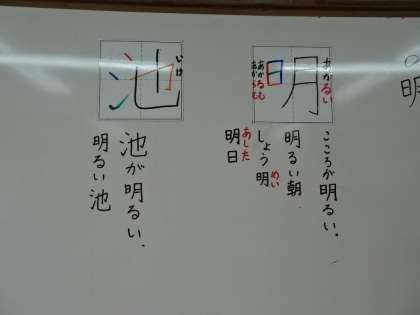 明
明
あかるい
あかるむ
あからむ
こころが明るい。
明るい朝
しょう明
めい
明日
あした
池
いけ
池が明るい。
明るい池